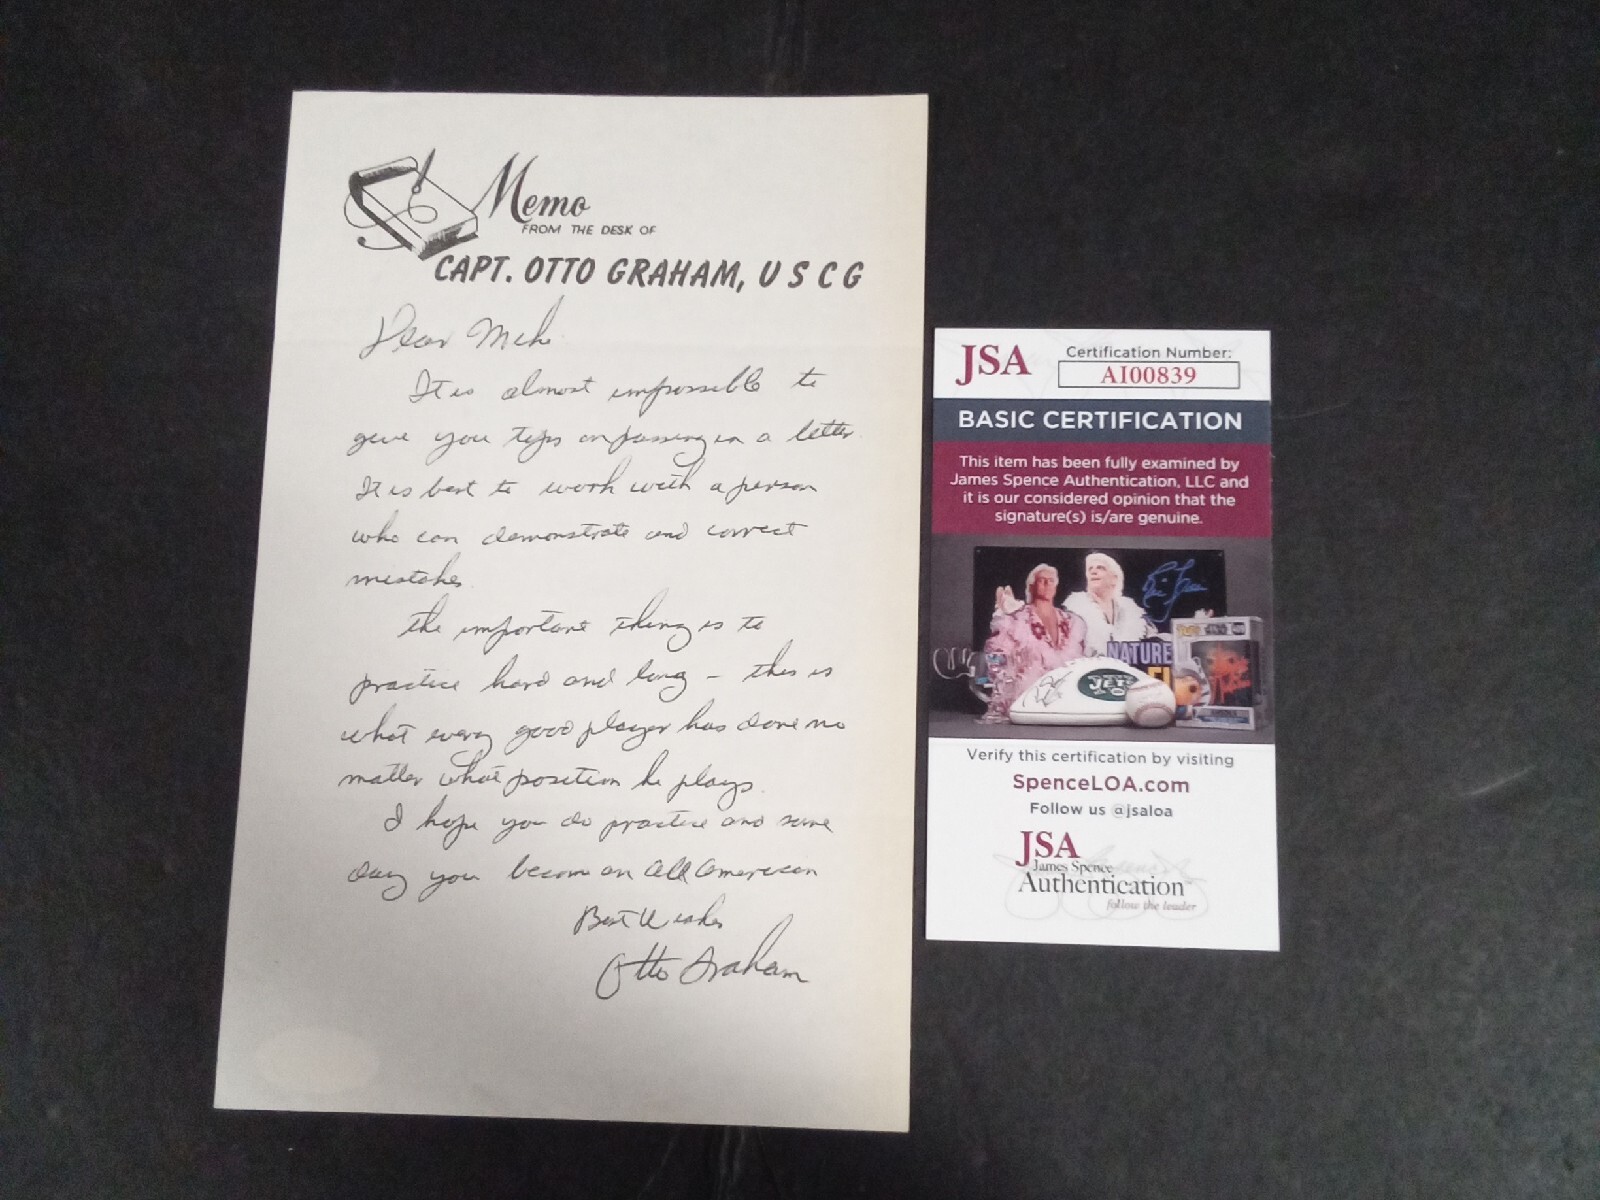 Memo
FROM THE DESK OF
CAPT. OTTO GRAHAM, USCG
Dear Mike
It is almost impossible to
give you tips on passing in a letter.
It is best to work with a person
who can demonstrate and correct
mistakes.
The important thing is to
practice hard and long – this is
what every good player has done no
matter what position he plays.
I hope you do practice and some
day you become an All American
Best Wishes
Otto Graham
JSA
Certification Number:
AI00839
BASIC CERTIFICATION
This item has been fully examined by
James Spence Authentication, LLC and
it is our considered opinion that the
signature(s) is/are genuine.
Ric Flair
NATURE
JETS
Verify this certification by visiting
SpenceLOA.com
Follow us @jsaloa
JSA
James Spence
Authentication
follow the leader